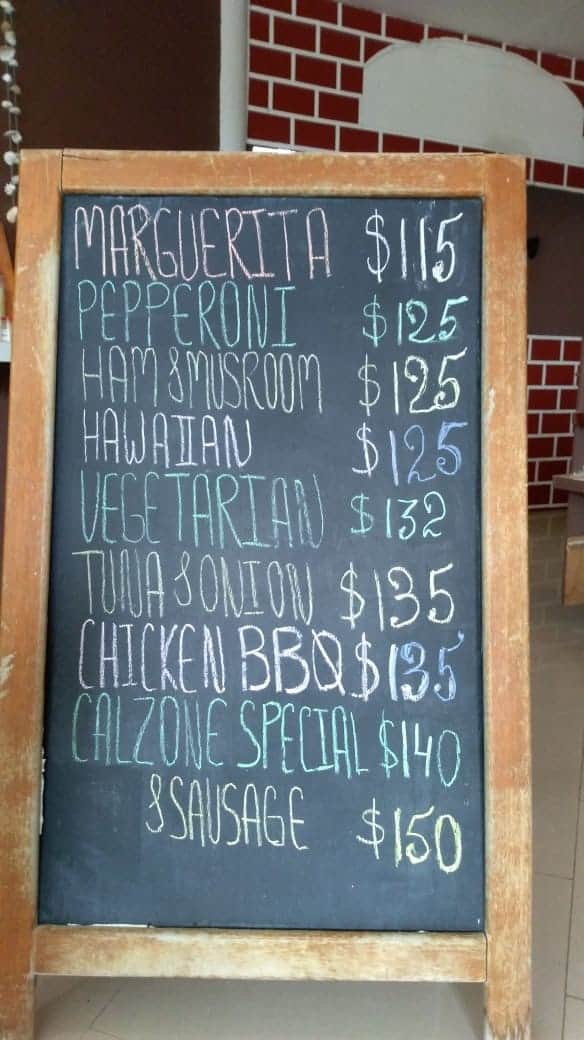 MARGUERITA $115
PEPPERONI $125
HAM & MUSROOM $125
HAWAIIAN $125
VEGETARIAN $132
TUNA & ONION $135
CHICKEN BBQ $135
CALZONE SPECIAL $140
& SAUSAGE $150